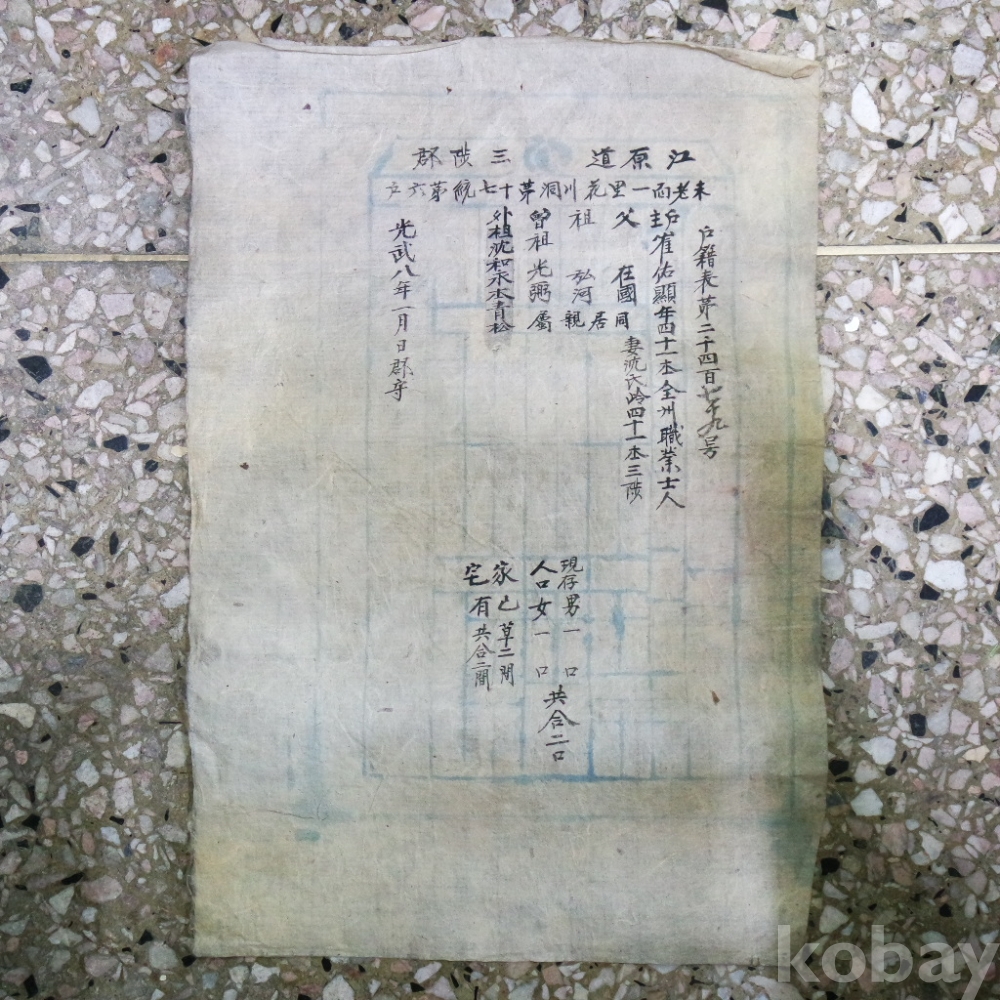 江原道 三陟郡
未老面一里花川洞第十七統第六戶
戶籍表第二千四百七十九号
戶主崔佑顯年四十一本全州職業士人
父 在國 同居
妻沈氏岭四十一本三陟
祖 弘河 親
曾祖 光弼 屬
外祖沈和永本青松
現存 男一口
人口 女一口
共合二口
家 己 草二間
宅 有 共合二間
光武八年一月日郡守
kobay